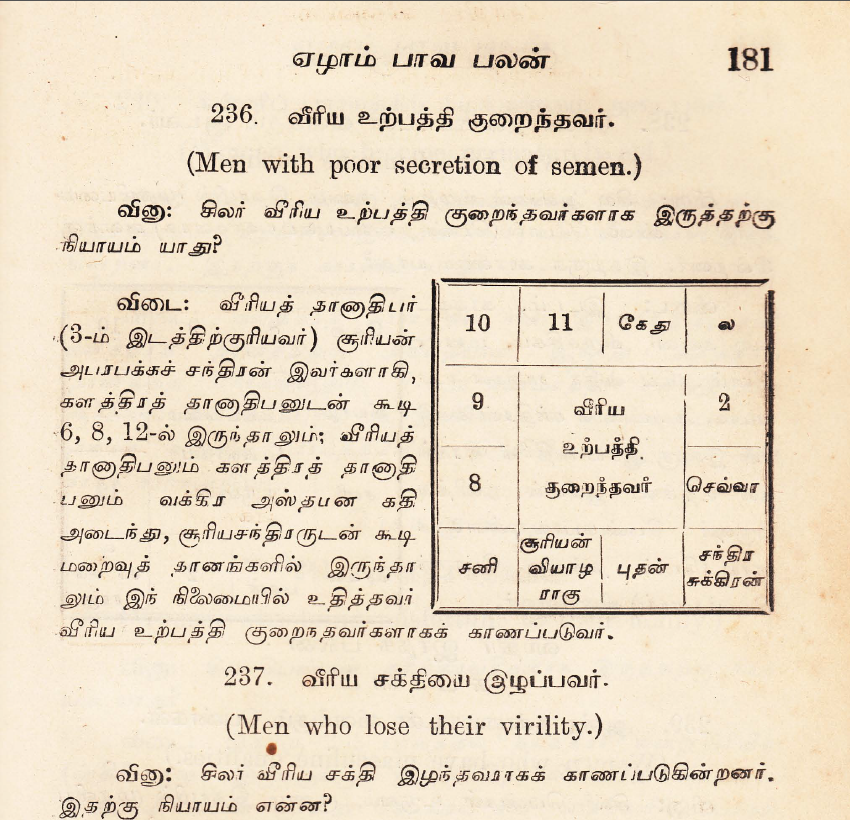 ஏழாம் பாவ பலன் 181
236. வீரிய உற்பத்தி குறைந்தவர்.
(Men with poor secretion of semen.)
வினு: சிலர் வீரிய உற்பத்தி குறைந்தவர்களாக இருத்தற்கு
நியாயம் யாது?
விடை: வீரியத் தானாதிபர்
(3-ம் இடத்திற்குரியவர்) சூரியன்
அபரபக்கச் சந்திரன் இவர்களாகி,
களத்திரத் தானாதிபனுடன் கூடி
6, 8, 12-ல் இருந்தாலும்; வீரியத்
தானாதிபனும் களத்திரத் தானாதி
பனும் வக்கிர அஸ்தமன கதி
அடைந்து, சூரியசந்திரருடன் கூடி
மறைவுத் தானங்களில் இருந்தா
லும் இந் நிலைமையில் உதித்தவர்
வீரிய உற்பத்தி குறைநதவர்களாகக் காணப்படுவர்.
10 11 கேது ல
9 வீரிய 2
உற்பத்தி
8 குறைந்தவர் செவ்வா
சனி சூரியன் வியாழ ராகு புதன் சந்திர சுக்கிரன்
237. வீரிய சக்தியை இழப்பவர்.
(Men who lose their virility.)
வினு: சிலர் வீரிய சக்தி இழந்தவராகக் காணப்படுகின்றனர்.
இதற்கு நியாயம் என்ன?